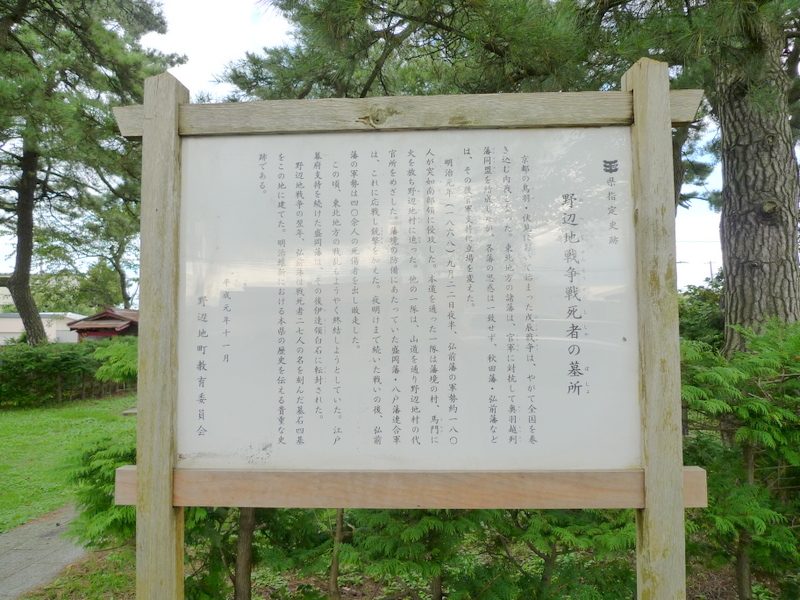 県指定史跡
野辺地戦争戦死者の墓所
京都の鳥羽・伏見の戦いで始まった戊辰戦争は、やがて全国を巻
き込む内戦となった。東北地方の諸藩は、官軍に対抗して奥羽越列
藩同盟を結成したが、各藩の思惑は一致せず、秋田藩・弘前藩など
は、その後官軍支持に立場を変えた。
明治元年(一八六八)九月二二日夜半、弘前藩の軍勢約一八〇
人が突如南部領に侵攻した。本道を通った一隊は藩境の村、馬門に
火を放ち野辺地村に迫った。他の一隊は、山道を通り野辺地村の代
官所をめざした。藩境の防備にあたっていた盛岡藩・八戸藩連合軍
は、これに応戦し銃撃を加えた。夜明けまで続いた戦いの後、弘前
藩の軍勢は四〇余人の死傷者を出し敗走した。
この頃、東北地方の戦いもようやく終結しようとしていた。江戸
幕府支持を続けた盛岡藩は、その後伊達領白石に転封された。
野辺地戦争の翌年、弘前藩は戦死者二七人の名を刻んだ墓石四基
をこの地に建てた。明治維新における本県の歴史を伝える貴重な史
跡である。
平成元年十一月
野辺地町教育委員会